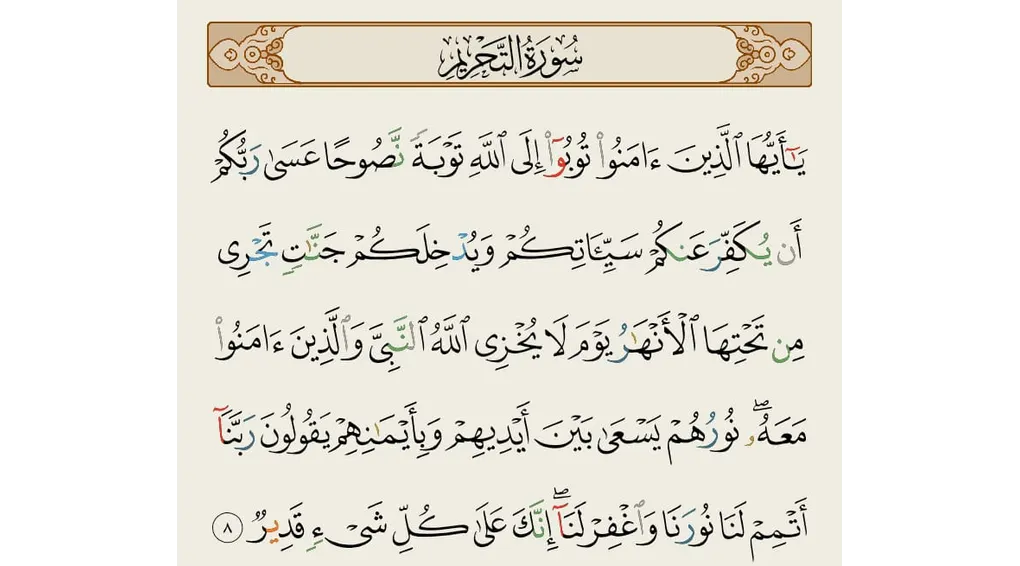 سُورَةُ التَّحْرِيمِ
يَـٰٓأَيُّهَا ٱلَّذِينَ ءَامَنُوا۟ تُوبُوٓا۟ إِلَى ٱللَّهِ تَوْبَةً نَّصُوحًا عَسَىٰ رَبُّكُمْ
أَن يُكَفِّرَ عَنكُمْ سَيِّـَٔاتِكُمْ وَيُدْخِلَكُمْ جَنَّـٰتٍ تَجْرِى
مِن تَحْتِهَا ٱلْأَنْهَـٰرُ يَوْمَ لَا يُخْزِى ٱللَّهُ ٱلنَّبِىَّ وَٱلَّذِينَ ءَامَنُوا۟
مَعَهُۥ ۖ نُورُهُمْ يَسْعَىٰ بَيْنَ أَيْدِيهِمْ وَبِأَيْمَـٰنِهِمْ يَقُولُونَ رَبَّنَآ
أَتْمِمْ لَنَا نُورَنَا وَٱغْفِرْ لَنَآ ۖ إِنَّكَ عَلَىٰ كُلِّ شَىْءٍ قَدِيرٌ ٨